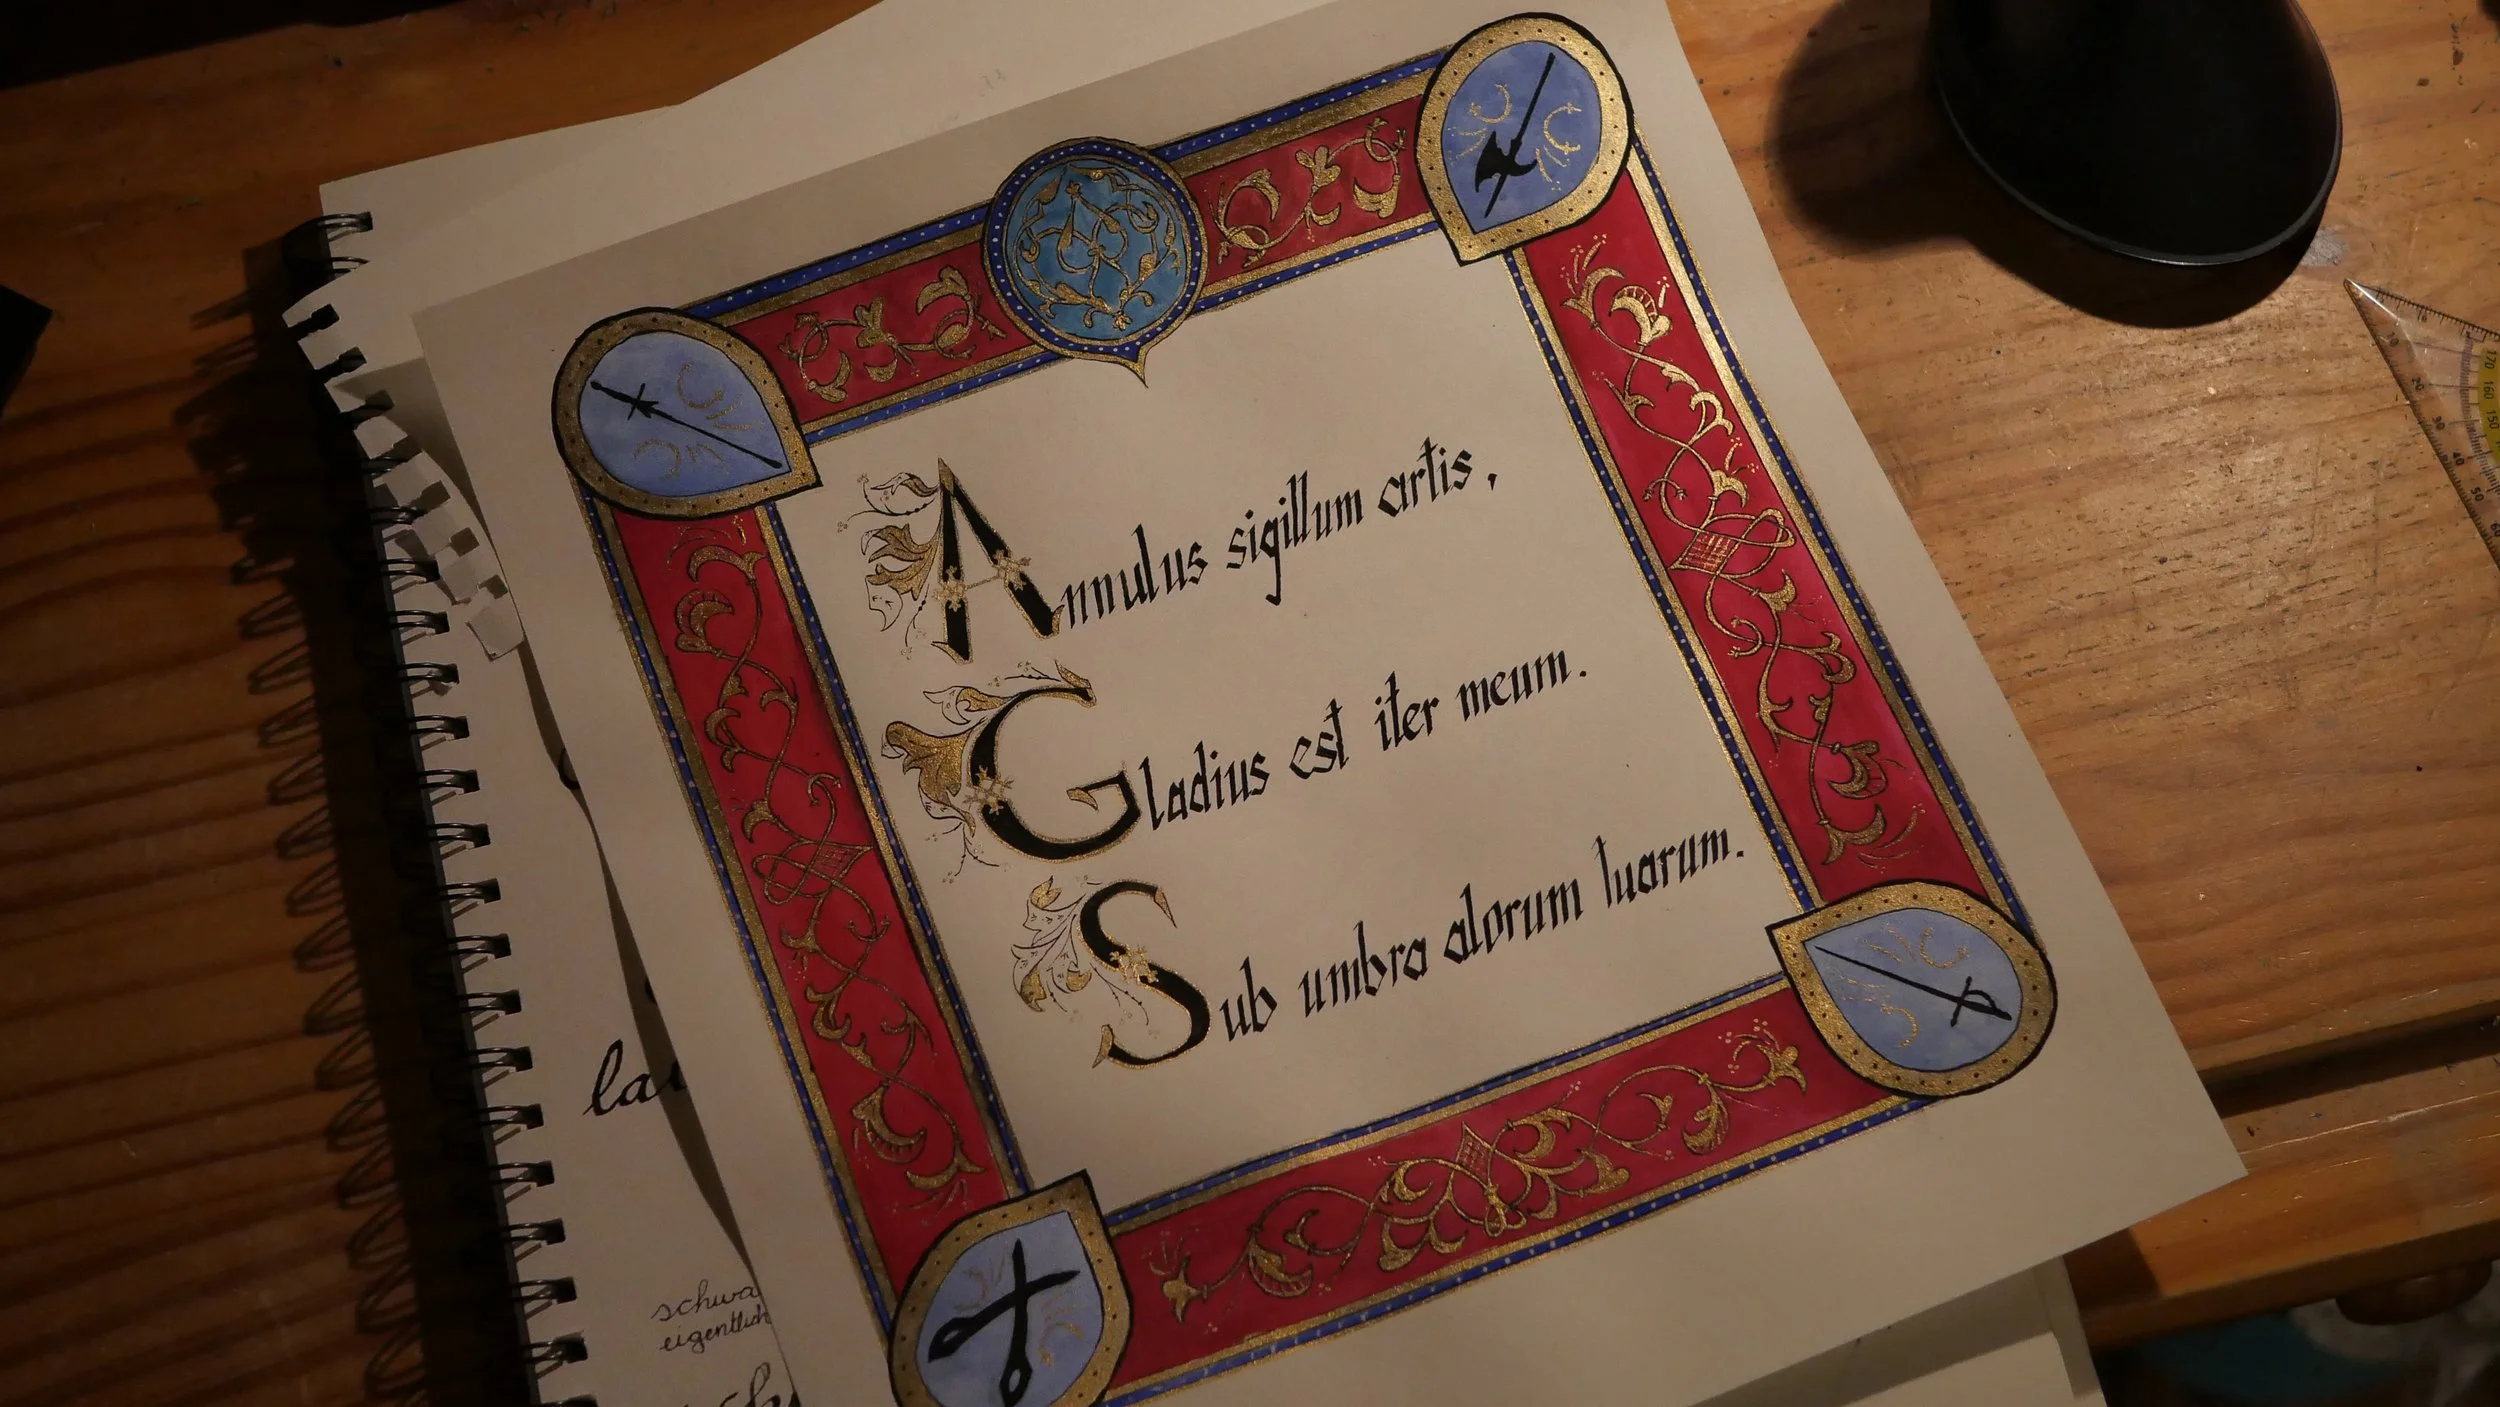 Annulus sigillum artis,
Gladius est iter meum.
Sub umbra alorum tuarum.
schwa
eigentlich